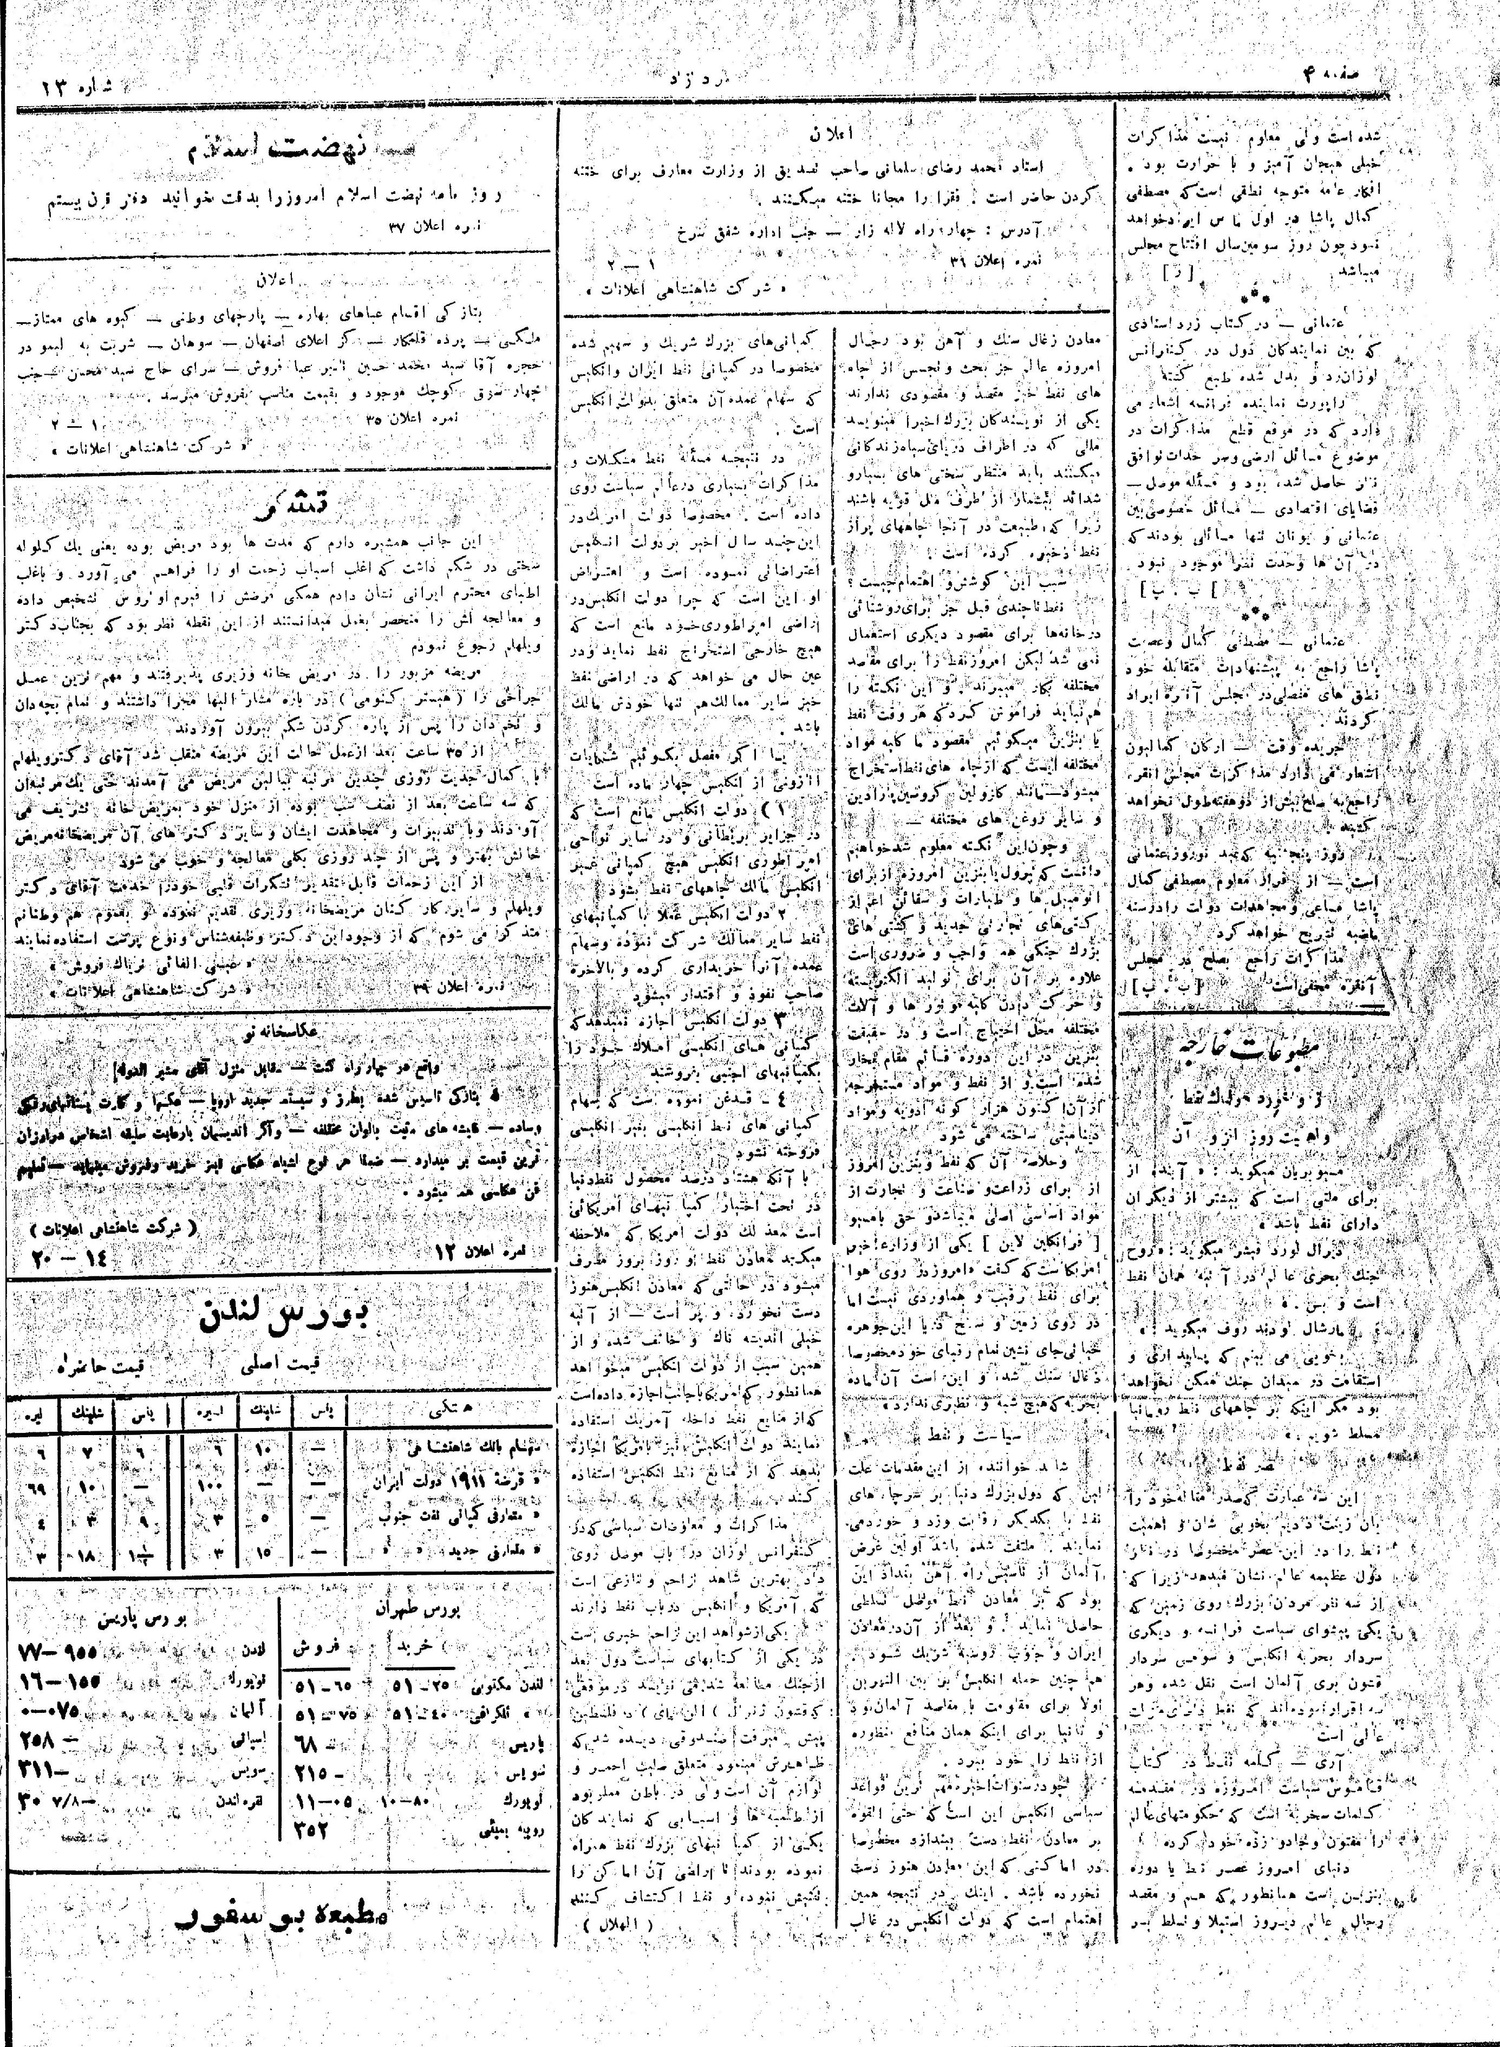 صفحه ۴
شماره ۱۳
شده است ولی معلوم نیست مذاکرات
خیلی هیجان آمیز و با حرارت بود .
افکار عامه متوجه نطقی است که مصطفی
کمال پاشا در اول مارس ایراد خواهد
نمود چون روز سومین سال افتتاح مجلس
میباشد
عثمانی — در کتاب زرد اسنادی
که بین نمایندکان دول در کنفرانس
لوزان رد و بدل شده طبع کشته
راپورت نماینده فرانسه اشعار می
دارد که در موقع قطع مذاکرات در
موضوع مسائل ارضی و سر حدات توافق
نظر حاصل شده بود و مسئله موصل —
قضایای اقتصادی — مسائل خصوصی بین
عثمانی و یونان تنها مسائلی بودند که
در آن ها وحدت نظر موجود نبود
[ ب . پ ]
عثمانی — مصطفی کمال و عصمت
پاشا راجع به پیشنهادات متقابله خود
نطق های مفصلی در مجلس آنقره ایراد
کردند .
جریده وقت — ارکان کمالیون
اشعار می دارد مذاکرات مجلس انقره
راجع به صلح بیش از دو هفته طول نخواهد
کشید .
روز پنجشنبه که عید نوروز عثمانی
است — از قرار معلوم مصطفی کمال
پاشا مساعی و مجاهدات دولت را در سنه
ماضیه تشریح خواهد کرد
مذاکرات راجع بصلح در مجلس
آنقره مخفی است [ ب . پ ]
مطبوعات خارجه
واهمیت روز افزون آن
مسیو بریان میکوید : « آینده از
برای ملتی است که بیشتر از دیکران
دارای نفط باشد »
ژنرال لورد فیشر میکوید : « روح
جنک بحری عالم در آتیه همان نفط
است و بس . »
مارشال لودندروف میکوید : «
بخوبی می بینم که پایداری و
استقامت در میدان جنک ممکن نخواهد
بود مکر اینکه بر چاههای نفط رومانیا
مسلط شویم . »
این سه عبارت که صدر مقاله خود را
بآن زینت دادیم بخوبی شان و اهمیت
نفط را در این عصر مخصوصا در نظر
دول عظیمه عالم نشان میدهد زیرا که
از سه نفر مردان بزرک روی زمین که
یکی پیشوای سیاست فرانسه و دیکری
سردار بحریه انکلیس و سومی سردار
قشون بری آلمان است نقل شده و هر
سه اقرار نموده‌اند که نفط دارای منزلت
عالی است
آری — کلمه نفط در کتاب
قاموس سیاست امروزه در مقدمه
کلمات سحریه است که حکومتهای عالم
را مفتون و جادو زده خود کرده
دنیای امروز عصر نفط یا دوره
بنزین است همانطور که هم و مقصد
رجال عالم دیروز استیلا و تسلط بر
اعلان
استاد محمد رضای سلمانی صاحب تصدیق از وزارت معارف برای ختنه
کردن حاضر است . فقرا را مجانا ختنه میکنند .
آدرس : چهار راه لاله زار — جنب اداره شفق سرخ
نمره اعلان ۳۱ ۱ — ۲
« شرکت شاهنشاهی اعلانات »
معادن زغال سنک و آهن بود رجال
امروزه عالم جز بحث و تجسس از چاه
های نفط خیز مقصد و مقصودی ندارند
یکی از نویسندکان بزرک اخیرا مینویسد
مللی که در اطراف دریای سیاه زندکانی
میکنند باید منتظر سختی های بسیار و
شدائد بیشمار از طرف ملل قویه باشند
زیرا که طبیعت در آنجا چاههای پر از
نفط ذخیره کرده است .
سبب این کوشش و اهتمام چیست ؟
نفط تا چندی قبل جز برای روشنائی
در خانه‌ها برای مقصود دیکری استعمال
نمی شد لیکن امروز نفط را برای مقاصد
مختلفه بکار میبرند . و این نکته را
هم نباید فراموش کرد که هر وقت نفط
یا بنزین میکوئیم مقصود ما کلیه مواد
مختلفه ایست که از چاه های نفط استخراج
میشود — مانند کازولین کروسین پارادین
و سایر روغن های مختلفه —
و چون این نکته معلوم شد خواهیم
دانست که پترول یا بنزین امروزه از برای
اتومبیل ها و طیارات و سفائن اعم از
کشتی‌های تجارتی جدید و کشتی های
بزرک جنکی هم واجب و ضروری است
علاوه بر آن برای تولید الکتریسته
و حرکت دادن کلیه موتور ها و آلات
مختلفه محل احتیاج است و در حقیقت
بنزین در این دوره قائم مقام بخار
شده است . و از نفط و مواد مستخرجه
از آن اکنون هزار کونه ادویه و مواد
دینامیتی ساخته می شود
و خلاصه آن که نفط و بنزین امروز
از برای زراعت و صناعت و تجارت از
مواد اساسی اصلی میباشد و حق با مسیو
[ فرانکلین لاین ] یکی از وزراء اخیر
امریکاست که کفت « امروز در روی هوا
برای نفط رقیب و هماوردی نیست اما
در روی زمین و سطح دریا این جوهره
حیاتی جای نشین تمام رقبای خود مخصوصا
ذغال سنک شده و این است آن ماده
بحریه که هیچ شبه و نظیری ندارد »
سیاست و نفط
شاید خواننده از این مقدمات علت
این که دول بزرک دنیا بر سر چاه های
نفط با یکدیکر رقابت و زد و خورد می
نمایند . ملتفت شده باشد اولین غرض
آلمان از تاسیس راه آهن بغداد این
بود که بر معادن نفط موصل تسلطی
حاصل نماید . و بعد از آن در معادن
ایران و جنوب روسیه شریک شود .
هم چنین حمله انکلیس بر بین النهرین
اولا برای مقاومت با مقاصد آلمان بود
و ثانیا برای اینکه همان منافع منظوره
از نفط را خود ببرد .
در اما کنی که این معادن هنوز دست
نخورده باشد . اینک در نتیجه همین
اهتمام است که دولت انکلیس در غالب
کمپانی‌های بزرک شریک و سهیم شده
مخصوصا در کمپانی نفط ایران و انکلیس
که سهام عمده آن متعلق بدولت انکلیس
است .
در نتیجه مسئله نفط مشکلات و
مذاکرات بسیاری در عالم سیاست روی
داده است . مخصوصا دولت امریک در
این چند سال اخیر بر دولت انکلیس
اعتراضاتی نموده است و اعتراض
او این است که چرا دولت انکلیس در
اراضی امپراطوری خود مانع است که
هیچ خارجی استخراج نفط نماید و در
عین حال می خواهد که در اراضی نفط
خیز سایر ممالک هم تنها خودش مالک
باشد .
۱ ) دولت انکلیس مانع است که
در جزایر بریطانی و در سایر نواحی
امپراطوری انکلیس هیچ کمپانی غیر
انکلیسی مالک چاههای نفط بشود
۲ دولت انکلیس عملا با کمپانیهای
نفط سایر ممالک شرکت نموده و سهام
عمده آنرا خریداری کرده و بالاخره
صاحب نفوذ و اقتدار میشود
۳ دولت انکلیس اجازه نمیدهد که
کمپانی های انکلیسی املاک خود را
بکمپانیهای اجنبی بفروشند
۴ — قدغن نموده است که سهام
کمپانی های نفط انکلیسی بغیر انکلیسی
فروخته نشود
با آنکه هشتاد درصد محصول نفط دنیا
در تحت اختیار کمپا نیهای آمریکائی
است معذلک دولت امریکا که ملاحظه
میکرد معادن نفط او روز بروز مصرف
میشود در حالی که معادن انکلیس هنوز
دست نخورده و پر است — از آتیه
خیلی اندیشه ناک و خائف شده و از
همین سبب از دولت انکلیس میخواهد
همانطور که امریکا باجانب اجازه داده است
که از منابع نفط داخله آمریک استفاده
نمایند دولت انکلیس نیز بامریکا اجازه
بدهد که از منابع نفط انکلیس استفاده
کند .
مذاکرات و معاوضات سیاسی که در
کنفرانس لوزان در باب موصل روی
داد بهترین شاهد تزاحم و تنازعی است
که آمریکا و انکلیس در باب نفط دارند
یکی از شواهد این تزاحم خبری است
پیش میرفت صندوقی دیده شد که
ظاهرش مینمود متعلق صلیب احمر و
لوازم آن است ولی در باطن مملو بود
یکی از کمپا نیهای بزرک نفط همراه
نموده بودند تا اراضی آن اماکن را
تفتیش نموده و نفط اکتشاف کنند
( الهلال )
نهضت اسلام
روز نامه نهضت اسلام امروز را بدقت بخوانید دفتر قرن بیستم
نمره اعلان ۳۷
اعلان
بتازکی اقسام عباهای بهاره — پارچهای وطنی — کیوه های ممتاز —
ملکی — پرده قلمکار — کز اعلای اصفهان — سوهان — شربت به لیمو در
حجره آقا سید محمد حسین تاجر عبا فروش — سرای حاج سید محسن — جنب
چهار سوق کوچک موجود و بقیمت مناسب بفروش میرسد .
نمره اعلان ۳۵ ۱ — ۲
« شرکت شاهنشاهی اعلانات »
تشکر
این جانب همشیره دارم که مدت ها بود مریض بوده یعنی یک کلوله
سختی در شکم داشت که اغلب اسباب زحمت او را فراهم می آورد و باغلب
اطبای محترم ایرانی نشان دادم همکی مرضش را فیبرم اوتروس تشخیص داده
و معالجه اش را منحصر بعمل میدانستند از این نقطه نظر بود که بجناب دکتر
ویلهام رجوع نمودم
مریضه مزبور را در مریض خانه وزیری پذیرفتند و مهم ترین عمل
جراحی را ( هیستر کتومی ) در باره مشار الیها مجرا داشتند و تمام بچه‌دان
و تخم دان را پس از پاره کردن شکم بیرون آوردند
از ۳۵ ساعت بعد از عمل حالت این مریضه منقلب شد آقای دکتر ویلهام
با کمال جدیت روزی چندین مرتبه ببالین مریض می آمدند حتی یک مرتبه‌ان
که سه ساعت بعد از نصف شب بوده از منزل خود بمریض خانه تشریف می
آوردند و با تدبیرات و مجاهدت ایشان و سایر دکتر های آن مریضخانه مریض
حالش بهتر و پس از چند روزی بکلی معالجه و خوب می شود
از این زحمات قابل تقدیر تشکرات قلبی خود را خدمت آقای دکتر
ویلهلم و سایر کار کنان مریضخانه وزیری تقدیم نموده و بعموم هم وطنانم
متذکر می شوم که از وجود این دکتر وظیفه‌شناس و نوع پرست استفاده نمایند
نمره اعلان ۳۹ « شرکت شاهنشاهی اعلانات »
عکاسخانه نو
واقع در چهار راه کنت — مقابل منزل آقای مشیر الدوله
بتازکی تاسیس شده بطرز و سیستم جدید اروپا — عکسها و کارت پستالهای رنکی
وساده — قابشه های مثبت بالوان مختلفه — و آکر اندیسمان با رعایت سلیقه اشخاص در ارزان
ترین قیمت بر میدارد — ضمنا هر نوع اشیاء عکاسی نیز خرید و فروش مینماید — تعلیم
فن عکاسی هم میشود .
( شرکت شاهنشاهی اعلانات )
نمره اعلان ۱۲ ۱۴ — ۲۰
بورس لندن
قیمت اصلی قیمت حاضره
هتکی پنس شلینک لیره پنس شلینک لیره
سهام بانک شاهنشاهی — ۱۰ ۶ ۶ ۷ ۶
« قرضهٔ ۱۹۱۱ دولت ایران — — ۱۰۰ — ۱۰ ۶۹
« متعارفی کمپانی نفت جنوب — ۵ ۳ ۹ ۳ ۴
« متعارفی جدید « « — ۱۵ ۳ ۱ ۱/۲ ۱۸ ۳
بورس طهران
خرید فروش
لندن مکتوبی ۲۵—۵۱ ۶۵—۵۱
« تلکرافی ۴۵—۵۱ ۷۵—۵۱
پاریس — ۶۸
سویس — ۲۱۵
نویورک ۸۰—۱۰ ۰۵—۱۱
روپیه بمبئی ۳۵۲
بورس پاریس
لندن ۹۵۵—۷۷
نویورک ۱۵۵—۱۶
آلمان ۰۷۵—۰
اسپانی — ۲۵۸
سویس — ۳۱۱
نقره لندن ۷/۸ ۳۰
مطبعه بوسفور